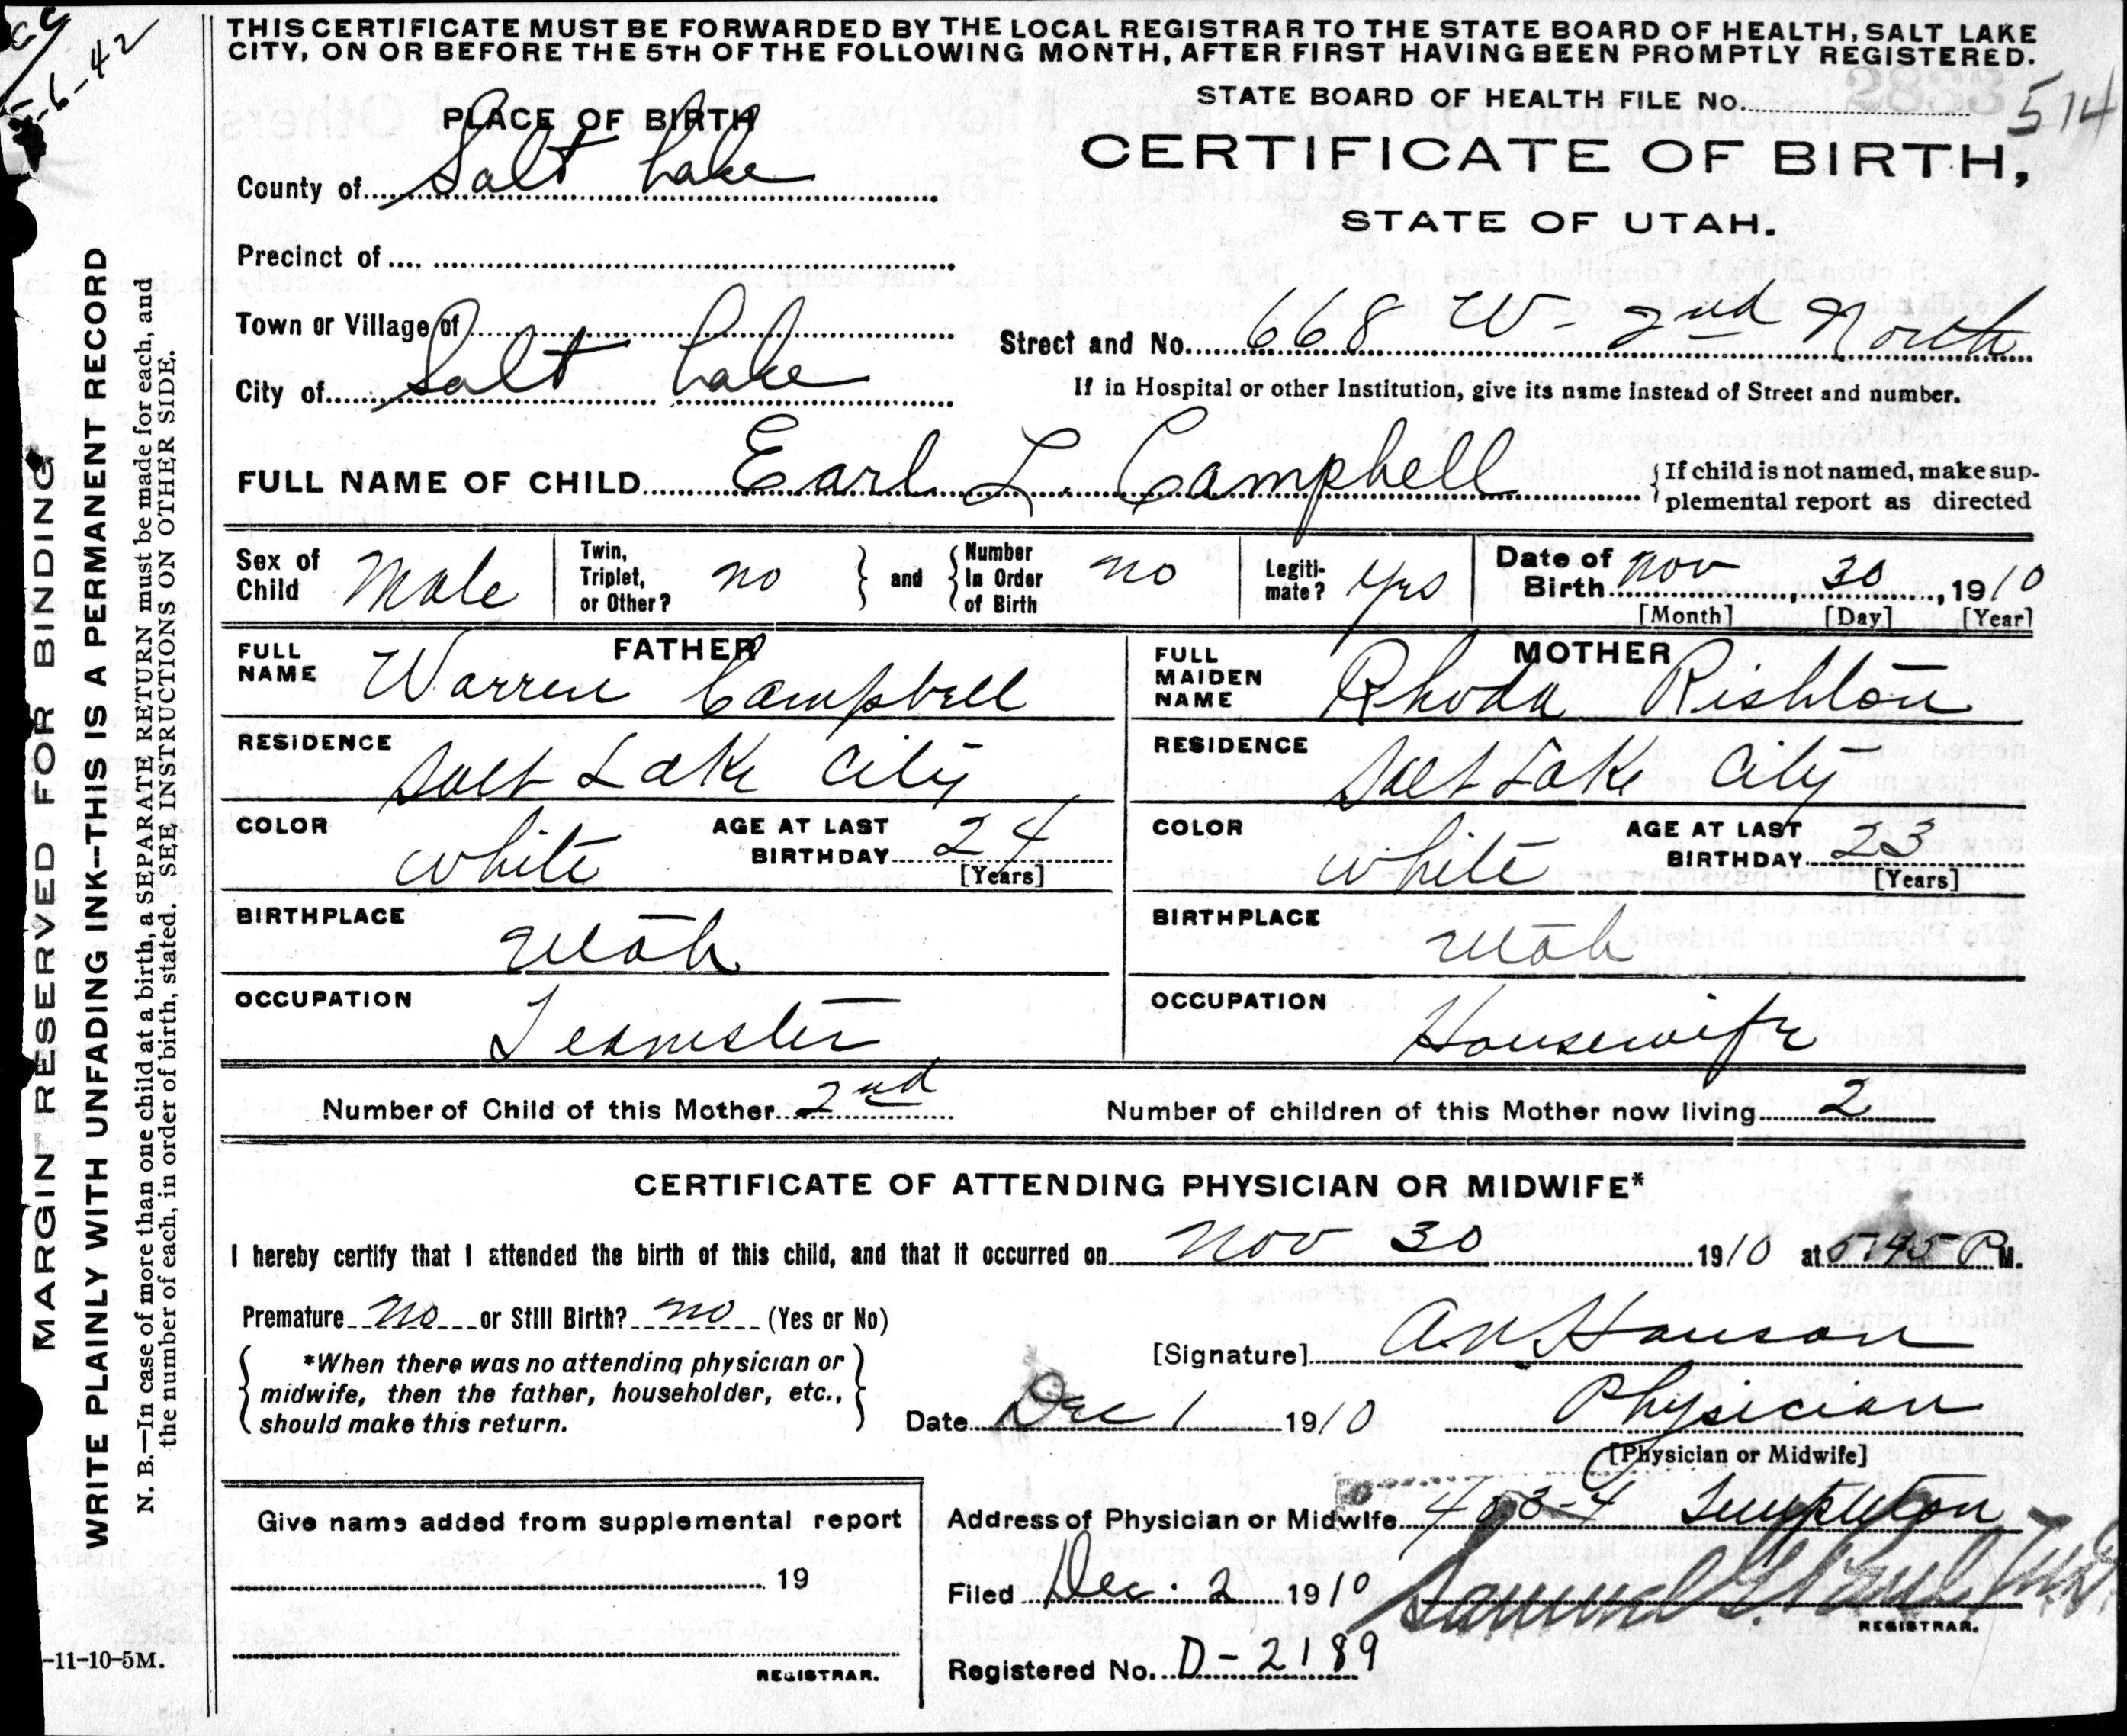 THIS CERTIFICATE MUST BE FORWARDED BY THE LOCAL REGISTRAR TO THE STATE BOARD OF HEALTH, SALT LAKE
CITY, ON OR BEFORE THE 5TH OF THE FOLLOWING MONTH, AFTER FIRST HAVING BEEN PROMPTLY REGISTERED.
5-6-42
STATE BOARD OF HEALTH FILE No. 514
CERTIFICATE OF BIRTH,
STATE OF UTAH.
PLACE OF BIRTH
County of Salt Lake
Precinct of
Town or Village of
City of Salt Lake
Street and No. 668 W - 2nd North
If in Hospital or other Institution, give its name instead of Street and number.
FULL NAME OF CHILD Earl L. Campbell
{If child is not named, make sup-
plemental report as directed
Sex of Child Male
Twin, Triplet, or Other? no } and { Number In Order of Birth no
Legiti-mate? yes
Date of Birth Nov 30, 1910
[Month] [Day] [Year]
FATHER
FULL NAME Warren Campbell
RESIDENCE Salt Lake City
COLOR white AGE AT LAST BIRTHDAY 24
[Years]
BIRTHPLACE Utah
OCCUPATION Teamster
MOTHER
FULL MAIDEN NAME Rhoda Rishton
RESIDENCE Salt Lake City
COLOR white AGE AT LAST BIRTHDAY 23
[Years]
BIRTHPLACE Utah
OCCUPATION Housewife
Number of Child of this Mother 2nd Number of children of this Mother now living 2
CERTIFICATE OF ATTENDING PHYSICIAN OR MIDWIFE*
I hereby certify that I attended the birth of this child, and that it occurred on Nov 30 1910 at 5:45 P M.
Premature no or Still Birth? no (Yes or No)
*When there was no attending physician or
midwife, then the father, householder, etc.,
should make this return.
[Signature] A N Hanson
Date Dec 1 1910 Physician
[Physician or Midwife]
Give name added from supplemental report
19
REGISTRAR.
Address of Physician or Midwife 403-4 Templeton
Filed Dec. 2 1910 Samuel G. Paul, M.D.
REGISTRAR.
Registered No. D-2189
MARGIN RESERVED FOR BINDING
WRITE PLAINLY WITH UNFADING INK--THIS IS A PERMANENT RECORD
N. B.—In case of more than one child at a birth, a SEPARATE RETURN must be made for each, and
the number of each, in order of birth, stated. SEE INSTRUCTIONS ON OTHER SIDE.
-11-10-5M.